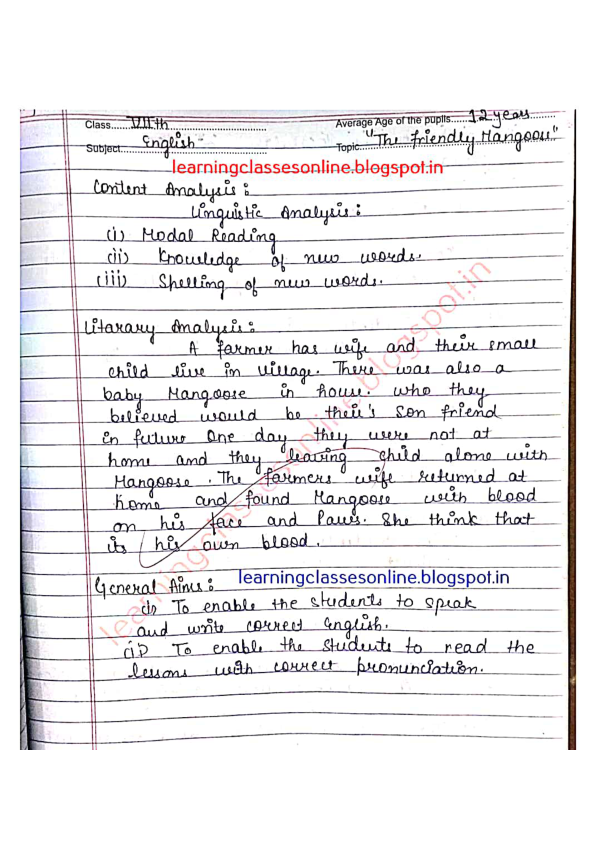 Class........VIIth............................ Average Age of the pupils.....12 years........
Subject........English............................ Topic......"The friendly Mangoose"
learningclassesonline.blogspot.in
Content Analysis :
Linguistic Analysis :
(i) Modal Reading
(ii) Knowledge of new words.
(iii) Spelling of new words.
Litarary Analysis :
A farmer has wife and their small
child live in village. There was also a
baby Mangoose in house. who they
believed would be their's son friend
in future One day they were not at
home and they leaving child alone with
Mangoose. The farmers wife returned at
home and found Mangoose with blood
on his face and Paws. She think that
its his own blood.
General Aims : learningclassesonline.blogspot.in
(i) To enable the students to speak
and write correct English.
(ii) To enable the students to read the
lessons with correct pronunciation.